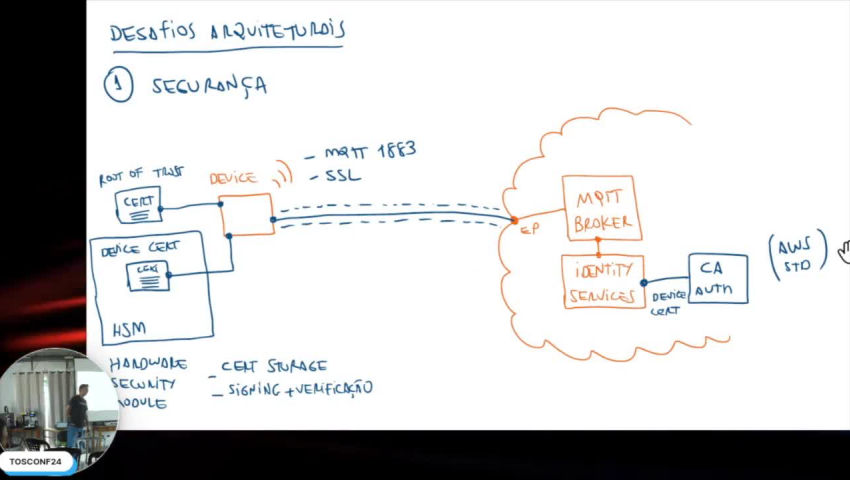 DESAFIOS ARQUITETURAIS
1 SEGURANÇA
- MQTT 1883
- SSL
ROOT OF TRUST
CERT
DEVICE
DEVICE CERT
CERT
HSM
HARDWARE
SECURITY
MODULE
- CERT STORAGE
- SIGNING + VERIFICAÇÃO
EP
MQTT
BROKER
IDENTITY
SERVICES
DEVICE
CERT
CA
AUTH
(AWS
STD)
TOSCONF24